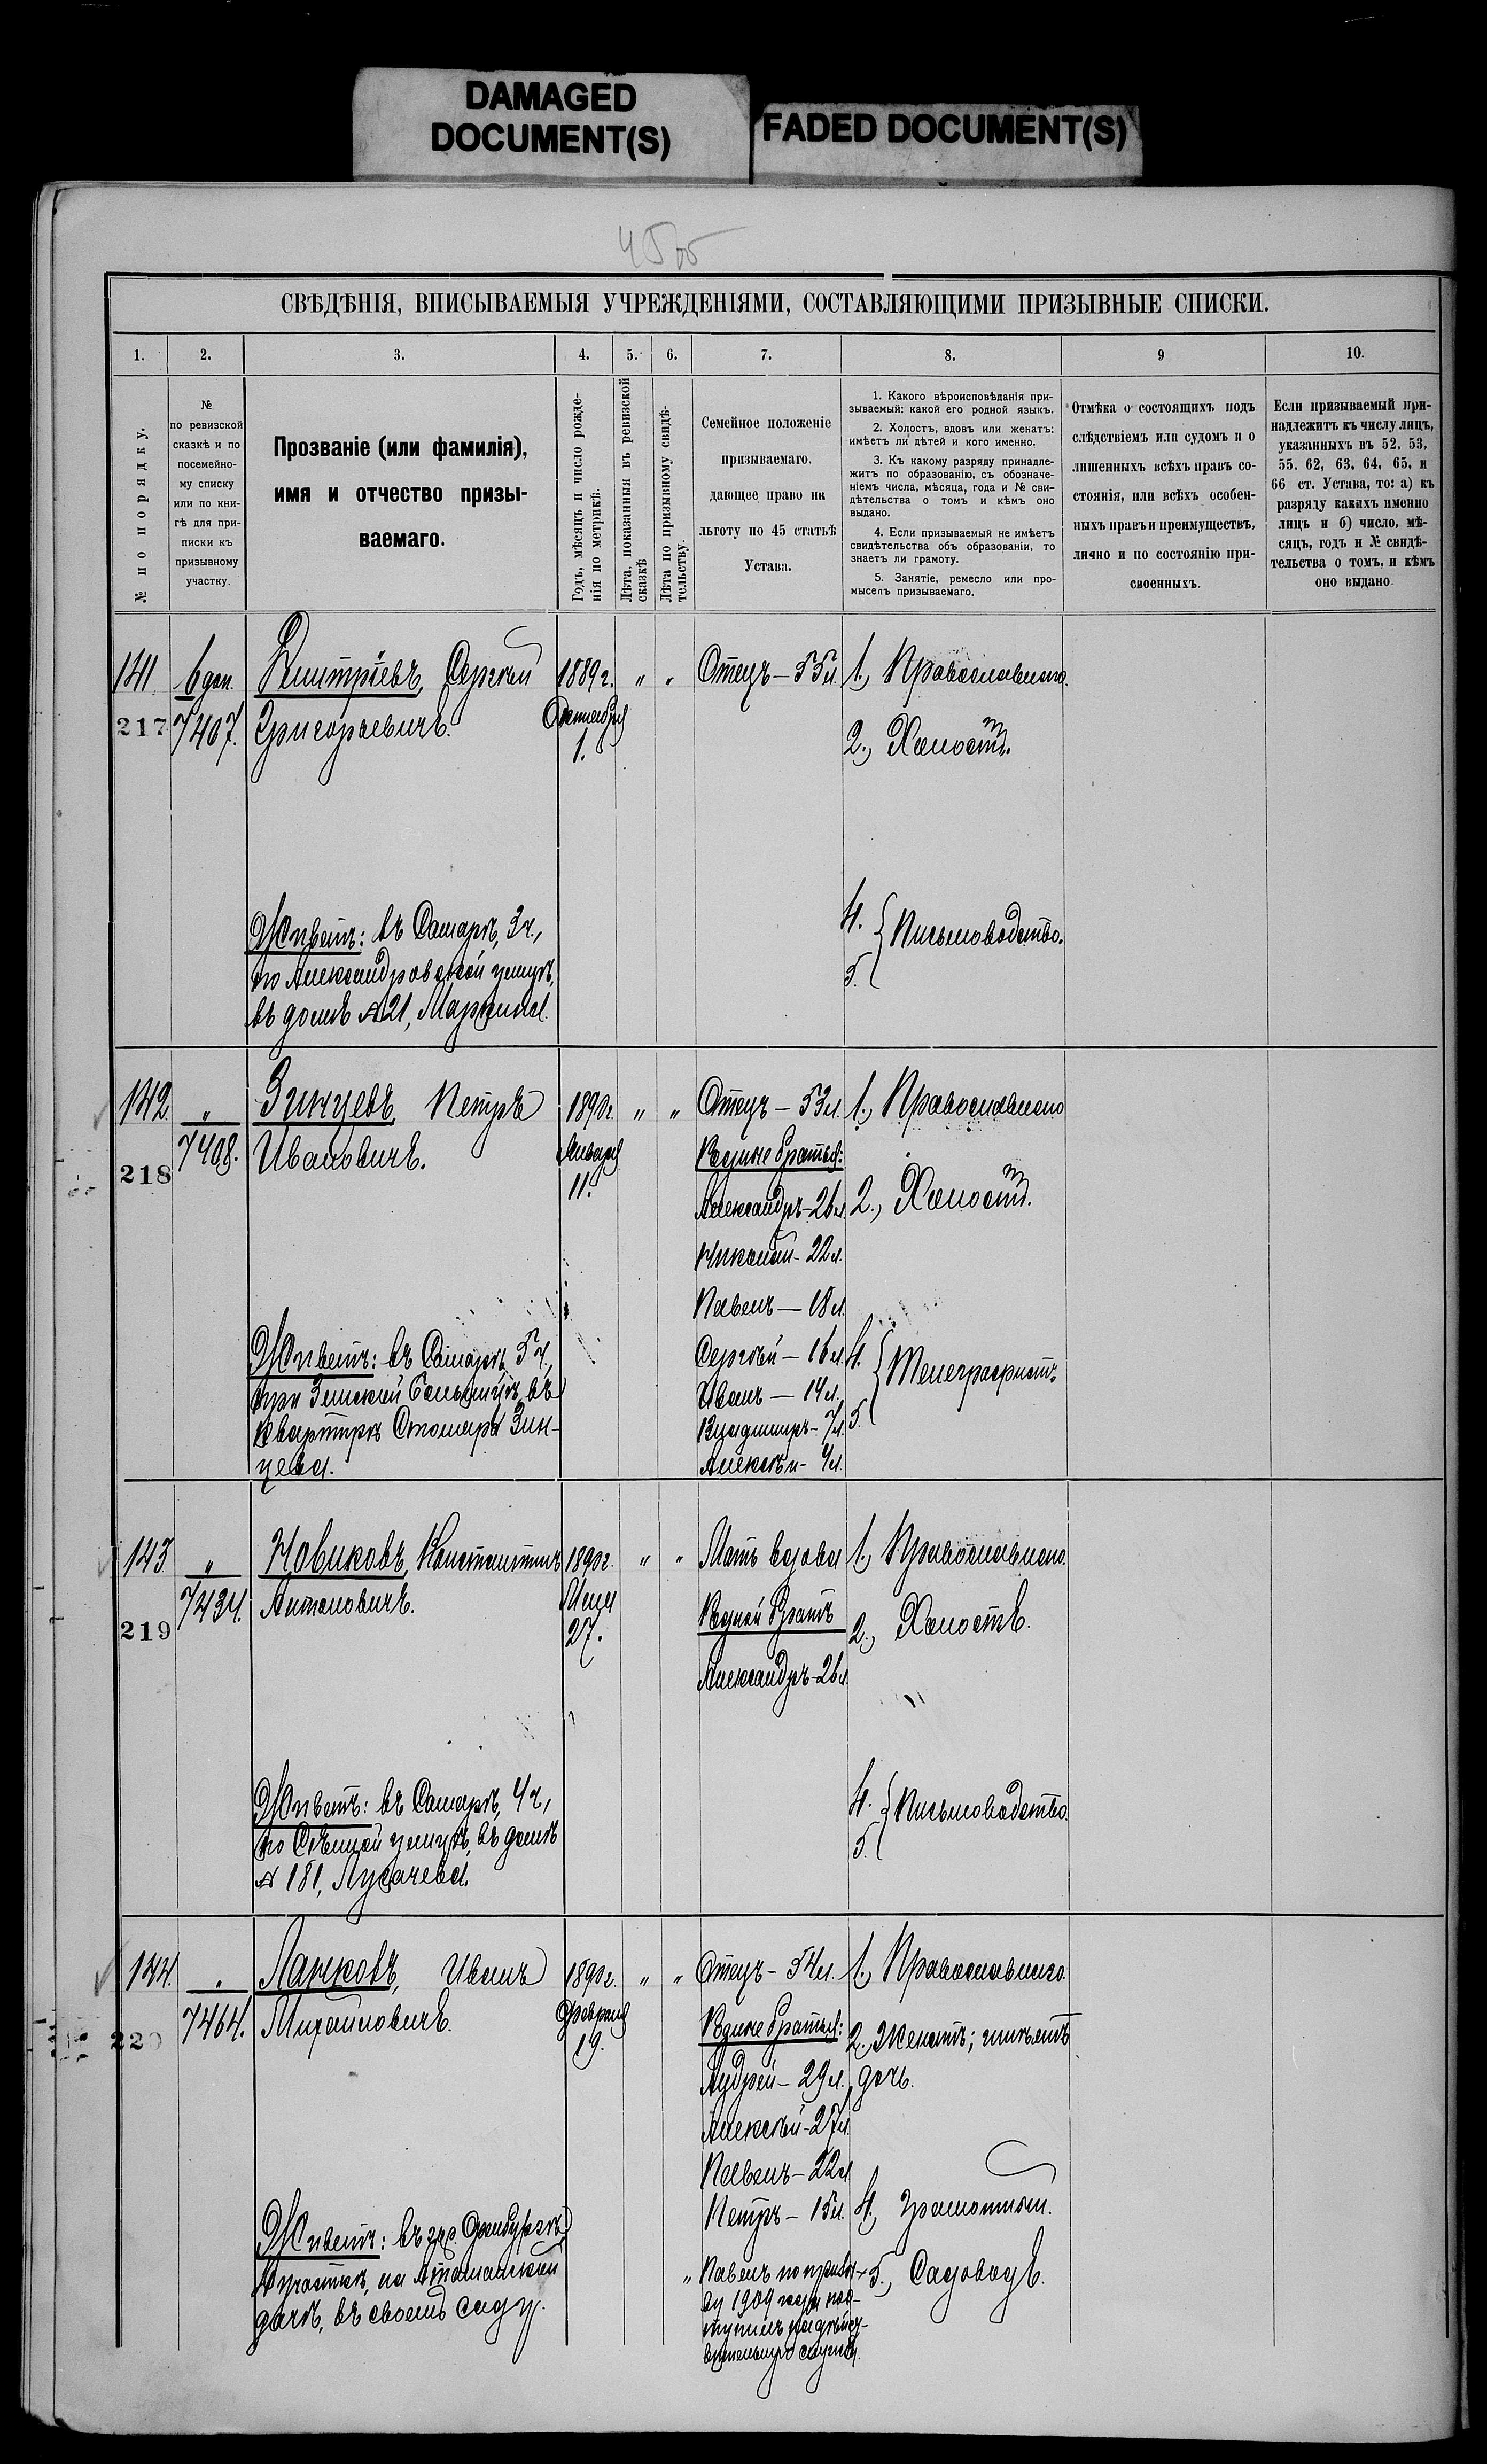 DAMAGED
DOCUMENT(S)
FADED DOCUMENT(S)
СВѢДѢНІЯ, ВПИСЫВАЕМЫЯ УЧРЕЖДЕНІЯМИ, СОСТАВЛЯЮЩИМИ ПРИЗЫВНЫЕ СПИСКИ.
1. 2. 3. 4. 5. 6. 7. 8. 9 10.
№ по порядку.
№
по ревизской
сказкѣ и по
посемейно-
му списку
или по кни-
гѣ для при-
писки къ
призывному
участку.
Прозваніе (или фамилія),
имя и отчество призы-
ваемаго.
Годъ, мѣсяцъ и число рожде-
нія по метрикѣ.
Лѣта, показанныя въ ревизской
сказкѣ
Лѣта по призывному свидѣ-
тельству.
Семейное положеніе
призываемаго,
дающее право на
льготу по 45 статьѣ
Устава.
1. Какого вѣроисповѣданія при-
зываемый: какой его родной языкъ.
2. Холостъ, вдовъ или женатъ:
имѣетъ ли дѣтей и кого именно.
3. Къ какому разряду принадле-
житъ по образованію, съ обозначе-
ніемъ числа, мѣсяца, года и № сви-
дѣтельства о томъ и кѣмъ оно
выдано.
4. Если призываемый не имѣетъ
свидѣтельства объ образованіи, то
знаетъ ли грамоту.
5. Занятіе, ремесло или про-
мыселъ призываемаго.
Отмѣка о состоящихъ подъ
слѣдствіемъ или судомъ и о
лишенныхъ всѣхъ правъ со-
стоянія, или всѣхъ особен-
ныхъ правъ и преимуществъ,
лично и по состоянію при-
своенныхъ.
Если призываемый при-
надлежитъ къ числу лицъ,
указанныхъ въ 52, 53,
55, 62, 63, 64, 65, и
66 ст. Устава, то: а) къ
разряду какихъ именно
лицъ и б) число, мѣ-
сяцъ, годъ и № свидѣ-
тельства о томъ, и кѣмъ
оно выдано.
141
217
6 доп.
7407.
Дмитріевъ, Сергѣй
Григорьевичъ.
Живетъ: въ Самарѣ, 3 ч.,
по Александровской улицѣ,
въ домѣ №21, Маркина.
1889 г.
Октября
1.
" "
Отецъ - 55 л.
1., Православнаго.
2., Холостъ.
4.
5.
Письмоводство.
142.
218
"
7408.
Зинцевъ, Петръ
Ивановичъ.
Живетъ: въ Самарѣ, 5 ч.,
при Земской больницѣ, въ
квартирѣ Столяра Зин-
цева.
1890 г.
Января
11.
" "
Отецъ - 53 л.
Родные братья:
Александръ - 26 л.
Николай - 22 л.
Павелъ - 18 л.
Сергѣй - 16 л.
Иванъ - 14 л.
Владиміръ - 7 л.
Алексѣй - 4 л.
1., Православнаго
2., Холостъ.
4.
5.
Телеграфистъ.
143.
219
"
7434.
Новиковъ, Константинъ
Антоновичъ.
Живетъ: въ Самарѣ, 4 ч.,
по Сѣнной улицѣ, въ домѣ
№ 181, Лугачева.
1890 г.
27.
" "
Мать вдова
Родной братъ
Александръ - 26 л.
1., Православнаго.
2., Холостъ.
4.
5.
Письмоводство.
144.
220
"
7464.
Ланковъ, Иванъ
Михайловичъ.
Живетъ: въ гор. Оренбургѣ,
участкѣ, на Атаманской
дачѣ, въ своемъ саду.
1890 г.
Февраля
19.
" "
Отецъ - 54 л.
Родные братья:
Андрей - 29 л.
Алексѣй - 27 л.
Павелъ - 22 л.
Петръ - 15 л.
" Павелъ по призы-
ву 1909 года пос-
тупилъ на дѣйст-
вительную службу.
1., Православнаго.
2., Женатъ; имѣетъ
дочь.
4., Грамотный.
5., Садоводъ.